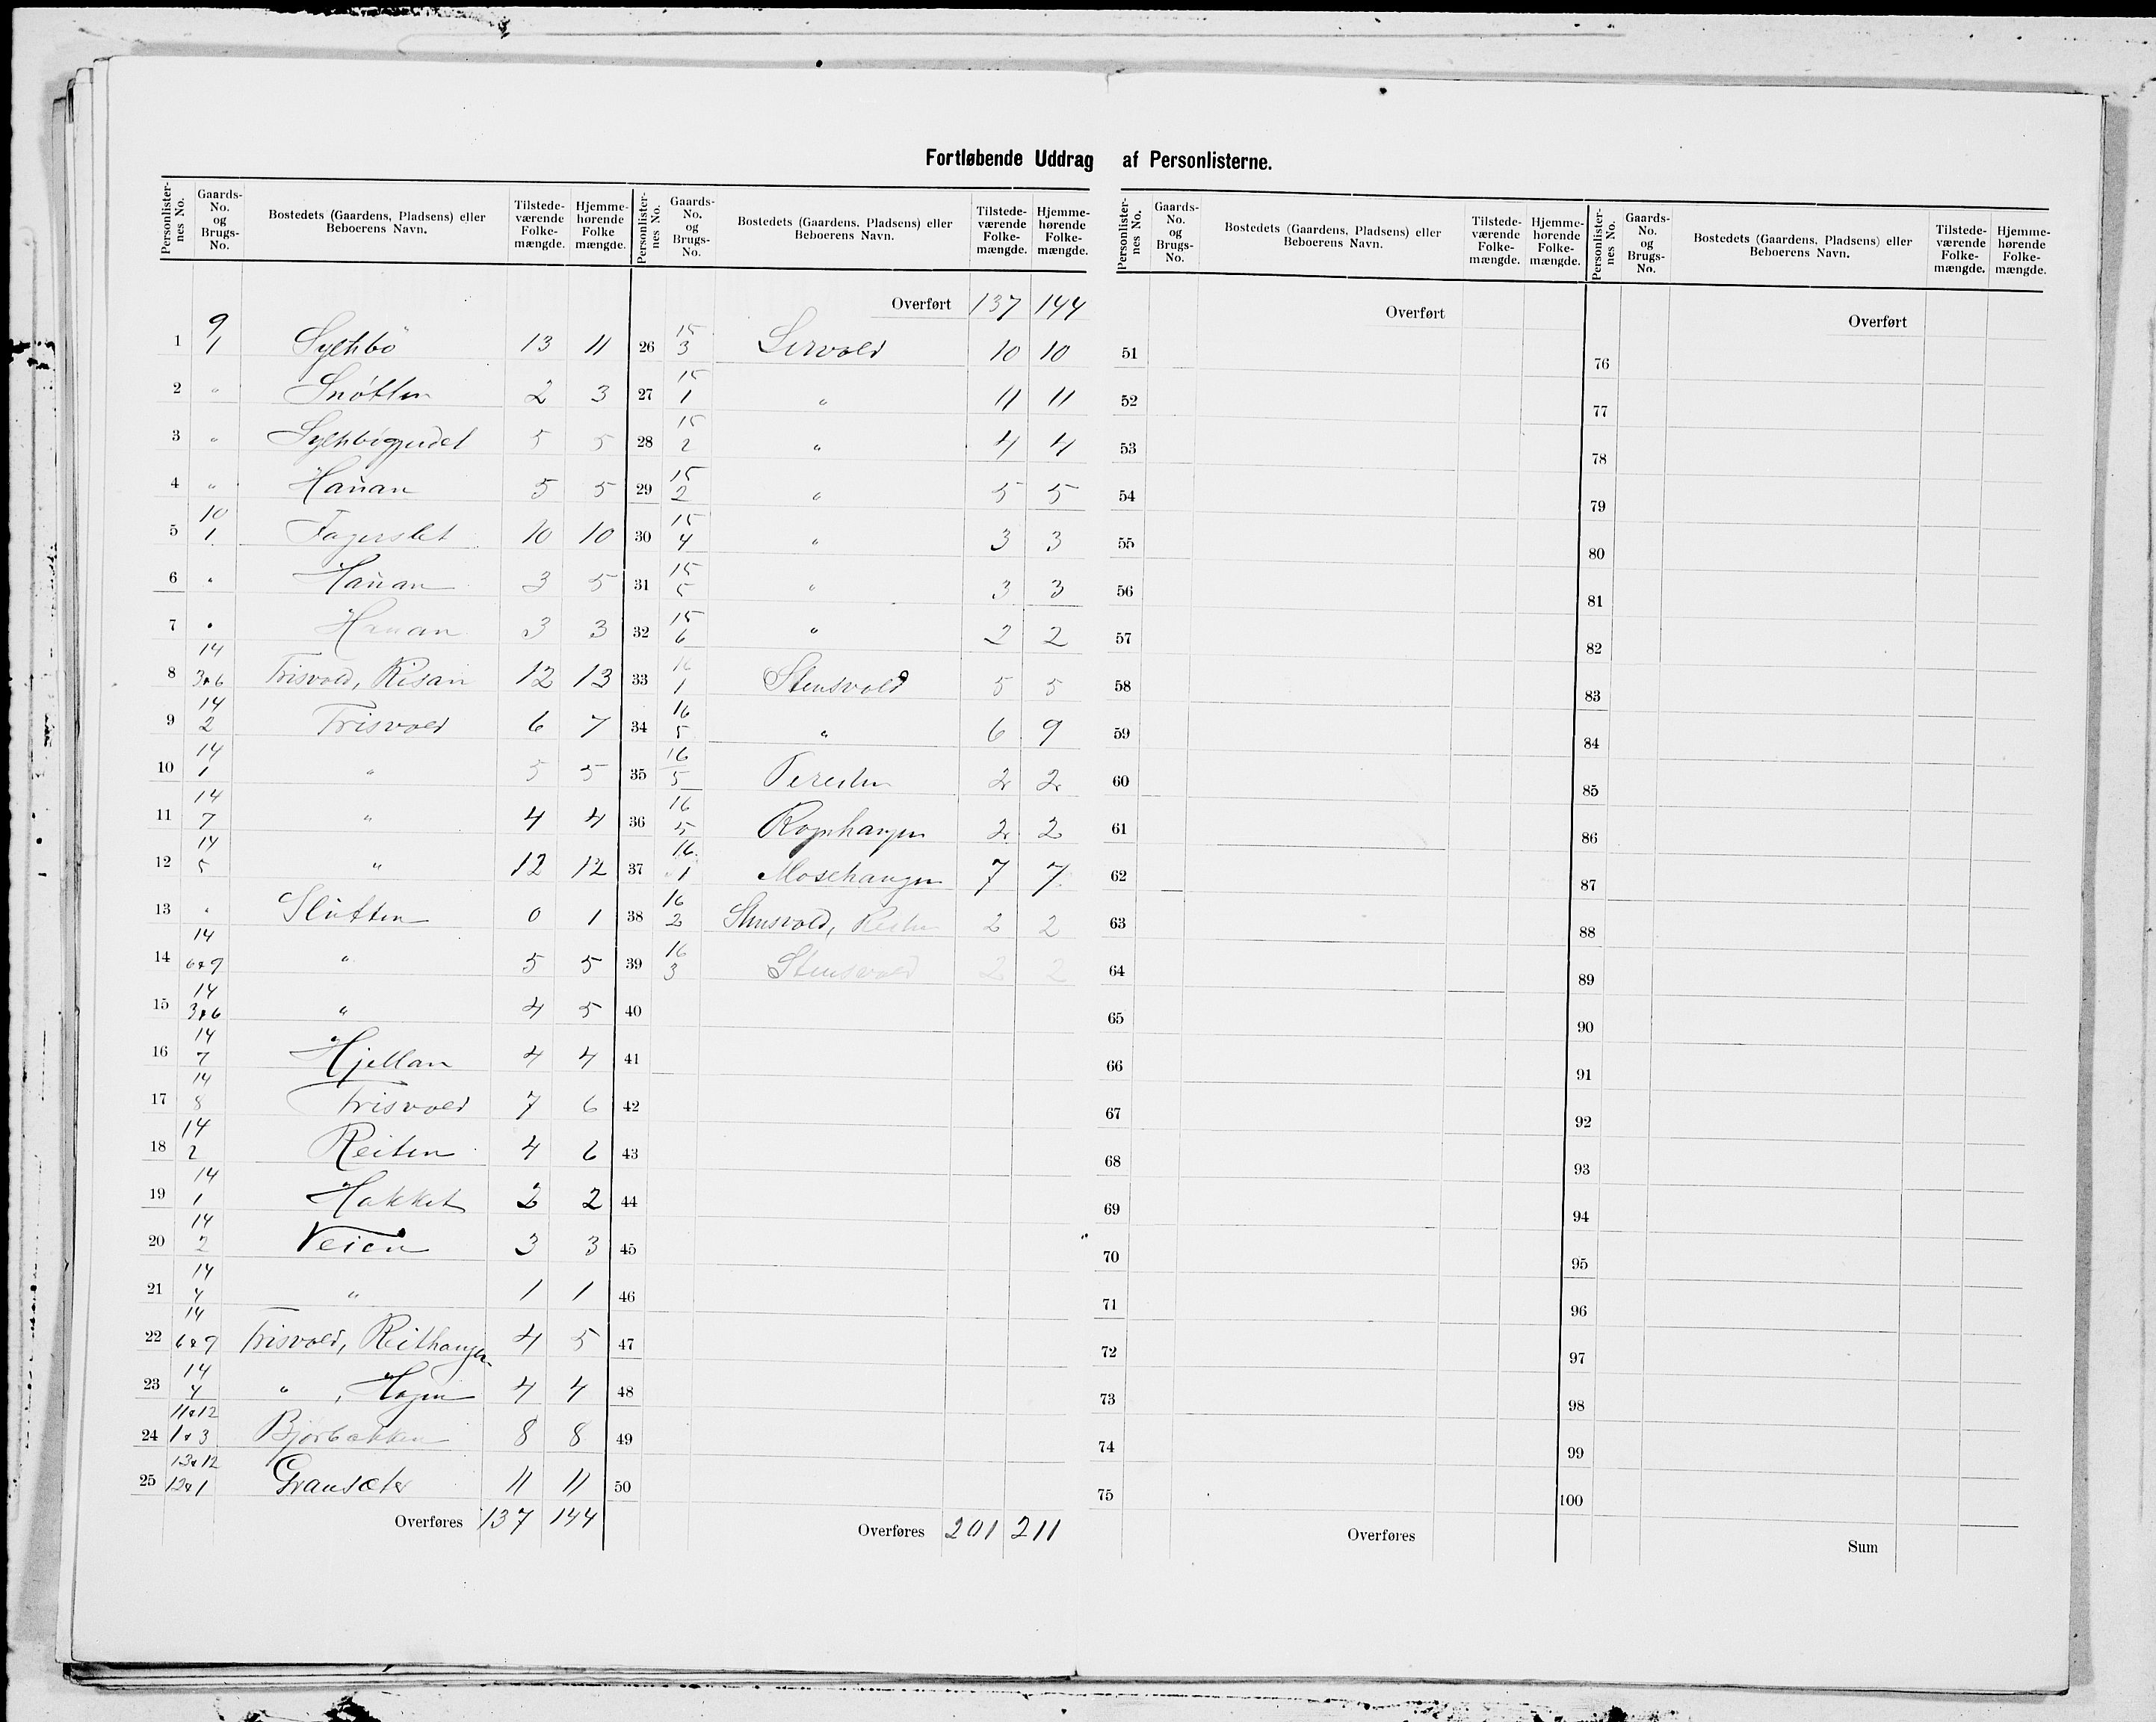 Fortløbende Uddrag af Personlisterne.
Personlisternes No. Gaards-No. og Brugs-No. Bostedets (Gaardens, Pladsens) eller Beboerens Navn. Tilstedeværende Folkemængde. Hjemmehørende Folkemængde.
1 9/1 Sylthbö 13 11
2 " Snøtten 2 3
3 " Sylthbögjerdet 5 5
4 " Haŭan 5 5
5 10/1 Fagerslet 10 10
6 " Haŭan 3 5
7 " Haŭan 3 3
8 14/3&6 Frisvold, Risan 12 13
9 14/2 Frisvold 6 7
10 14/1 " 5 5
11 14/7 " 4 4
12 14/5 " 12 12
13 " Slŭtten 0 1
14 14/6&9 " 5 5
15 14/3&6 " 4 5
16 14/7 Hjellan 4 4
17 14/8 Frisvold 7 6
18 14/2 Reiten 4 6
19 14/1 Hakket 2 2
20 14/2 Veien 3 3
21 14/4 " 1 1
22 14/6&9 Frisvold, Reithaugen 4 5
23 14/4 " , Hagen 4 4
24 11&12/1&3 Bjørbækken 8 8
25 13&12/12&1 Gransæter 11 11
Overføres 137 144
Personlisternes No. Gaards-No. og Brugs-No. Bostedets (Gaardens, Pladsens) eller Beboerens Navn. Tilstedeværende Folkemængde. Hjemmehørende Folkemængde.
Overført 137 144
26 15/3 Lervold 10 10
27 15/1 " 11 11
28 15/2 " 4 4
29 15/2 " 5 5
30 15/4 " 3 3
31 15/5 " 3 3
32 15/6 " 2 2
33 16/1 Stensvold 5 5
34 16/5 " 6 9
35 16/5 2 2
36 16/5 2 2
37 16/1 Mosehaugen 7 7
38 16/2 Stensvold, Reiten 2 2
39 16/3 Stensvold 2 2
40
41
42
43
44
45
46
47
48
49
50
Overføres 201 211
Personlisternes No. Gaards-No. og Brugs-No. Bostedets (Gaardens, Pladsens) eller Beboerens Navn. Tilstedeværende Folkemængde. Hjemmehørende Folkemængde.
Overført
51
52
53
54
55
56
57
58
59
60
61
62
63
64
65
66
67
68
69
70
71
72
73
74
75
Overføres
Personlisternes No. Gaards-No. og Brugs-No. Bostedets (Gaardens, Pladsens) eller Beboerens Navn. Tilstedeværende Folkemængde. Hjemmehørende Folkemængde.
Overført
76
77
78
79
80
81
82
83
84
85
86
87
88
89
90
91
92
93
94
95
96
97
98
99
100
Sum